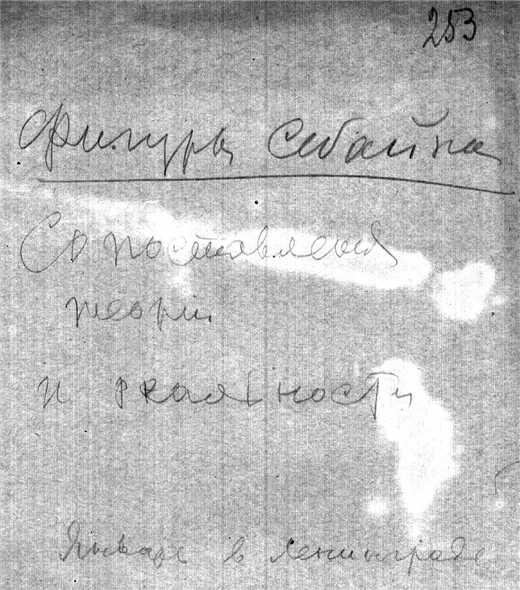 253
Фигуры
Сопоставления
теории
и реальности
Январь в Ленинграде